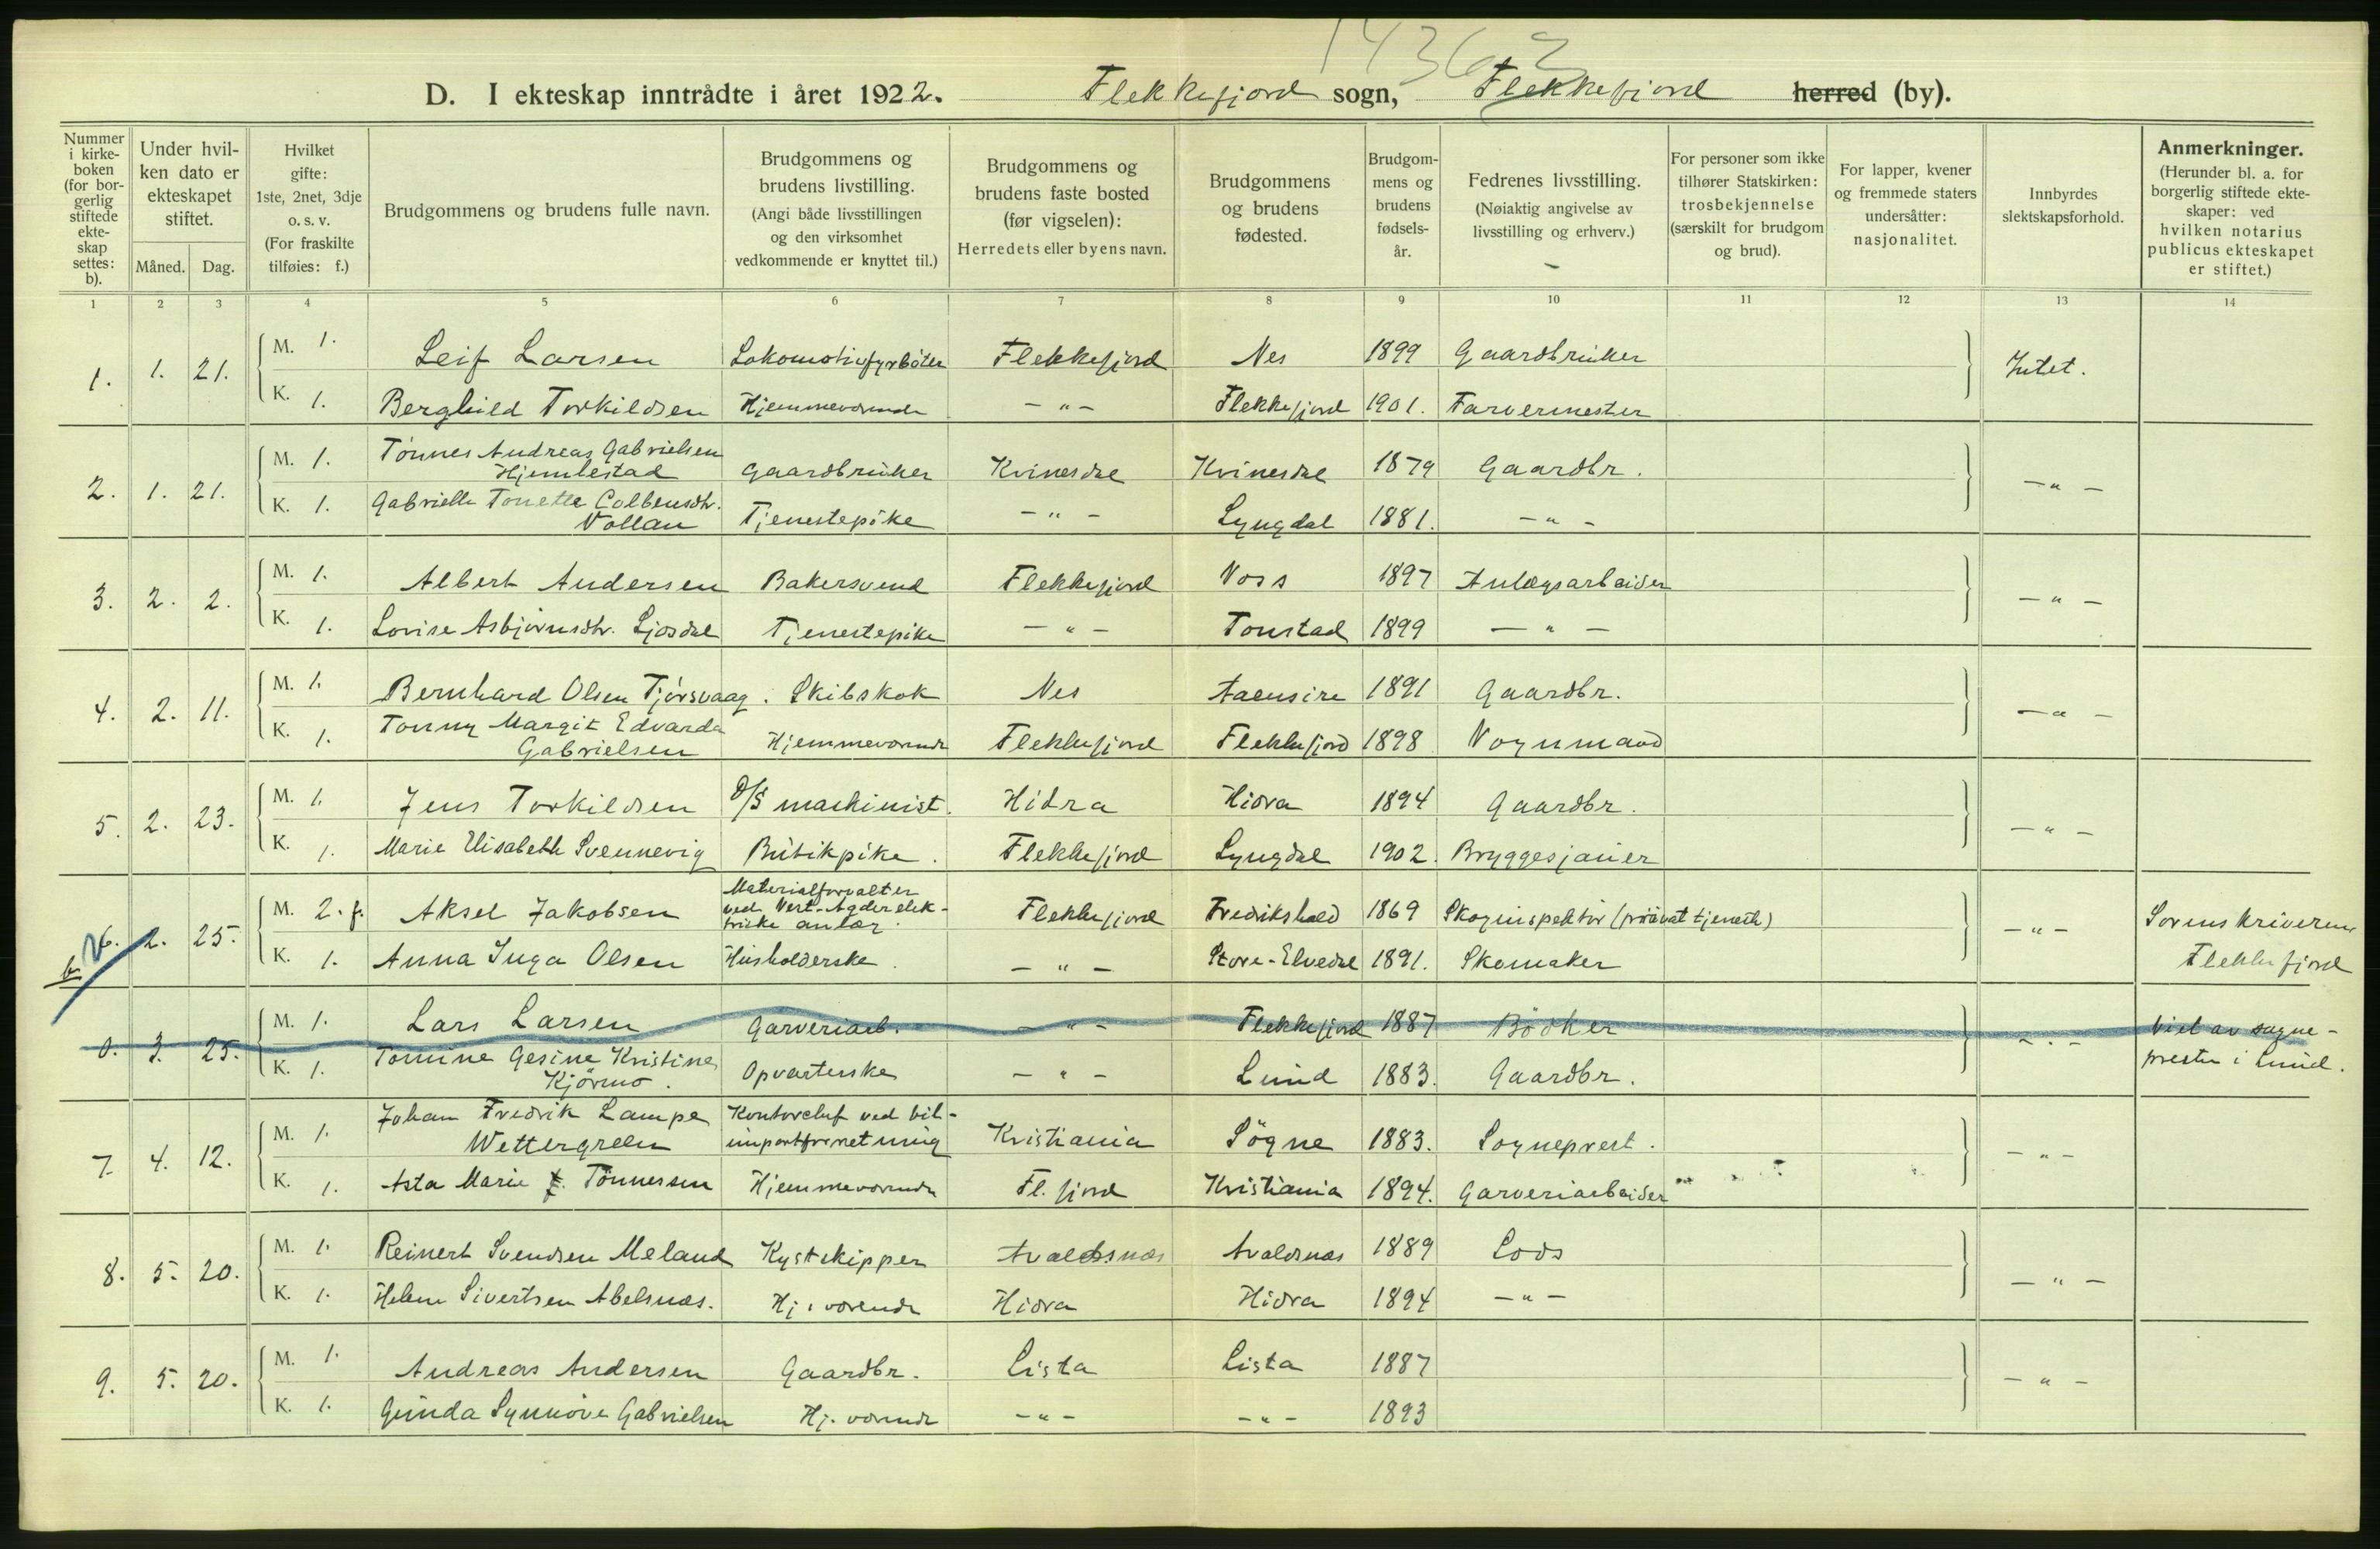 14363
D. I ekteskap inntrådte i året 1922. Flekkefjord sogn, Flekkefjord herred (by).
Nummer i kirkeboken (for borgerlig stiftede ekteskap settes: b).
Under hvilken dato er ekteskapet stiftet.
Måned. Dag.
Hvilket gifte: 1ste, 2net, 3dje o. s. v. (For fraskilte tilføies: f.)
Brudgommens og brudens fulle navn.
Brudgommens og brudens livstilling. (Angi både livsstillingen og den virksomhet vedkommende er knyttet til.)
Brudgommens og brudens faste bosted (før vigselen): Herredets eller byens navn.
Brudgommens og brudens fødested.
Brudgommens og brudens fødselsår.
Fedrenes livsstilling. (Nøiaktig angivelse av livsstilling og erhverv.)
For personer som ikke tilhører Statskirken: trosbekjennelse (særskilt for brudgom og brud).
For lapper, kvener og fremmede staters undersåtter: nasjonalitet.
Innbyrdes slektskapsforhold.
Anmerkninger. (Herunder bl. a. for borgerlig stiftede ekteskaper: ved hvilken notarius publicus ekteskapet er stiftet.)
1 2 3 4 5 6 7 8 9 10 11 12 13 14
1. 1. 21. M. 1. Leif Larsen Lokomotivfyrböter Flekkefjord Nes 1899 Gaardbruker Intet.
K. 1. Berghild Torkildsen Hjemmeværende - " - Flekkefjord 1901. Farvermester
2. 1. 21. M. 1. Tönnes Andreas Gabrielsen Hjemlestad Gaardbruker Kvinesdal Kvinesdal 1879 Gaardbr. - " -
K. 1. Gabrielle Tonette Colbensdtr. Vollan Tjenestepike - " - Lyngdal 1881. - " -
3. 2. 2. M. 1. Albert Andersen Bakersvend Flekkefjord Voss 1897 Anlægsarbeider - " -
K. 1. Lovise Asbjörnsdtr. Ljosdal Tjenestepike - " - Tonstad 1899 - " -
4. 2. 11. M. 1. Bernhard Olsen Tjörsvaag. Skibskok Nes Aaensire 1891 Gaardbr. - " -
K. 1. Tonny Margit Edvarda Gabrielsen Hjemmeværende Flekkefjord Flekkefjord 1898 Vognmand
5. 2. 23. M. 1. Jens Torkildsen D/S machinist. Hidra Hidra 1894 Gaardbr. - " -
K. 1. Marie Elisabeth Svennevig Butikpike. Flekkefjord Lyngdal 1902. Bryggesjauer
b 6. 2. 25. M. 2. f. Aksel Jakobsen Materialforvalter ved Vest-Agder elektriske anlæg. Flekkefjord Fredrikshald 1869 Skoginspektör (privat tjeneste) - " - Sorenskriveren Flekkefjord
K. 1. Anna Inga Olsen Husholderske. - " - Store-Elvedal 1891. Skomaker
0. 3. 25. M. 1. Lars Larsen Garveriarb. - " - Flekkefjord 1887 Bödker - " - Viet av sogne-
presten i Lund.
K. 1. Tomine Gesine Kristine Kjörmo. Opvarterske - " - Lund 1883. Gaardbr.
7. 4. 12. M. 1. Johan Fredrik Lampe Wettergreen Kontorchef ved bilimportforretning Kristiania Sögne 1883. Sogneprest. - " -
K. 1. Asta Marie f. Tönnessen Hjemmeværende Fl. fjord Kristiania 1894. Garveriarbeider
8. 5. 20. M. 1. Reinert Svendsen Meland Kystskipper Avaldsnæs Avaldsnæs 1889 Lods - " -
K. 1. Helene Sivertsen Abelsnæs. Hj. værende Hidra Hidra 1894 - " -
9. 5. 20. M. 1. Andreas Andersen Gaardbr. Lista Lista 1887 - " -
K. 1. Gunda Synnöve Gabrielsen Hj. værende - " - - " - 1893